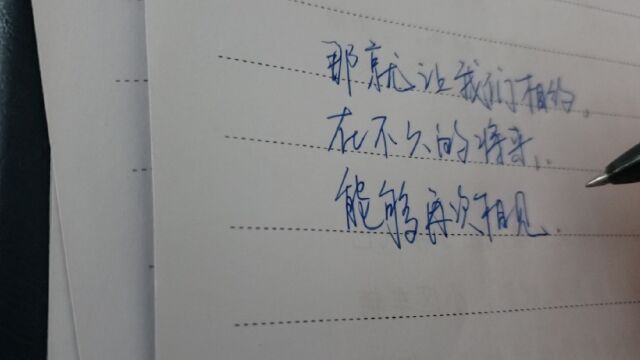 那就让我们相约，
在不久的将来，
能够再次相见.